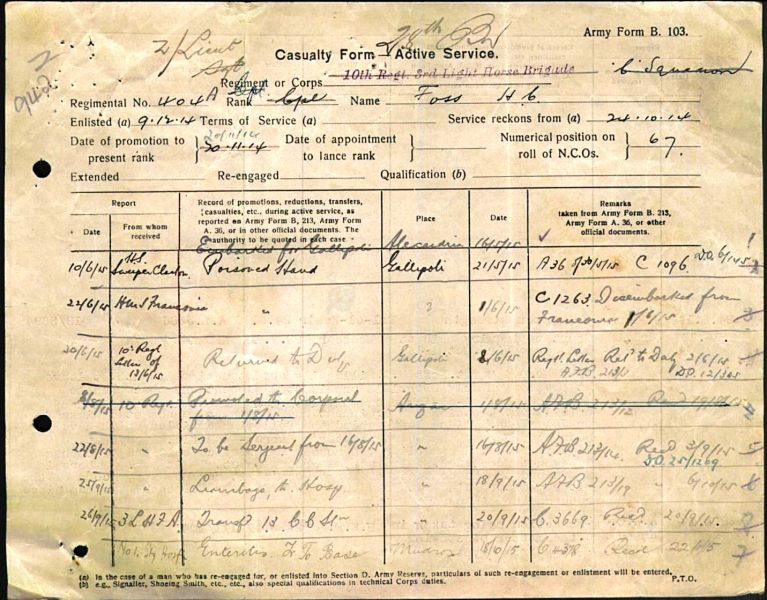 2/Lieut 28th Bn
Army Form B. 103.
2
942
Casualty Form—Active Service.
Sgt
Regiment or Corps 10th Regt. 3rd Light Horse Brigade C Squadron
Regimental No. 404A Rank Cpl Name Foss H C
Enlisted (a) 9.12.14 Terms of Service (a) Service reckons from (a) 24.10.14
20/11/14
Date of promotion to present rank 30.11.14 Date of appointment to lance rank Numerical position on roll of N.C.Os. 67.
Extended Re-engaged Qualification (b)
Report
Date
From whom received
Record of promotions, reductions, transfers, casualties, etc., during active service, as reported on Army Form B. 213, Army Form A. 36, or in other official documents. The authority to be quoted in each case
Place
Date
Remarks taken from Army Form B. 213, Army Form A. 36, or other official documents.
Embarked for Gallipoli Alexandria 16/5/15
10/6/15 H.S. Poisoned Hand Gallipoli 21/5/15 A36 C 1096
22/6/15 H.M.S Franconia " 1/6/15 C 1263 Disembarked from Franconia 1/6/15
20/6/15 10th Regt letter of 13/6/15 Returned to Duty Gallipoli 2/6/15 Regtl. Letter Ret to Duty 2/6/15
A.F.B. 213/1
8/8/15 10 Regt Promoted to Corporal from 1/8/15 Anzac 1/8/15 A.F.B 213/12 Recd 19/8/15
22/8/15 To be Sergeant from 16/8/15 " 16/8/15 A.F.B 213/14. Recd 3/9/15
D.O. 25/1269
25/9/15 Lumbago, to Hosp " 18/9/15 A.F.B 213/19 " 6/10/15
26/9/15 3 L H F A Transf 13 C C Stn " 20/9/15 C.3669. Recd 20/9/15
No 1. Sty Hosp Enteritis To Base Mudros 18/10/15 Recd 22/11/15
(a) In the case of a man who has re-engaged for, or enlisted into Section D. Army Reserve, particulars of such re-engagement or enlistment will be entered.
(b) e.g., Signaller, Shoeing Smith, etc., etc., also special qualifications in technical Corps duties. P.T.O.